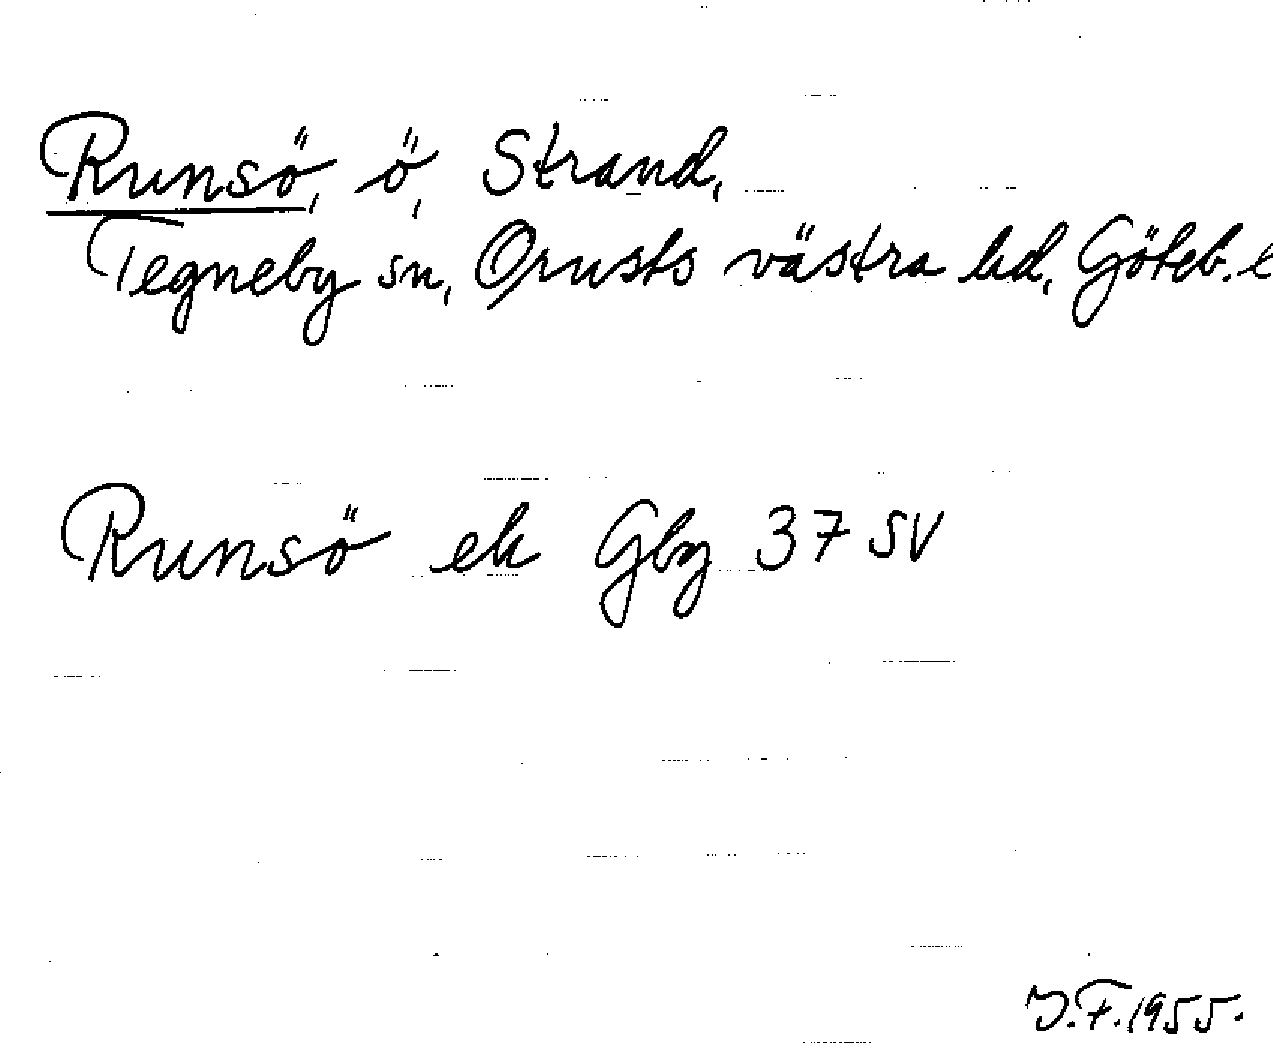 Runsö, ö, Strand,
Tegneby sn, Orusts västra hd, Göteb. l
Runsö ek Gbg 37 SV
J.F. 1955.